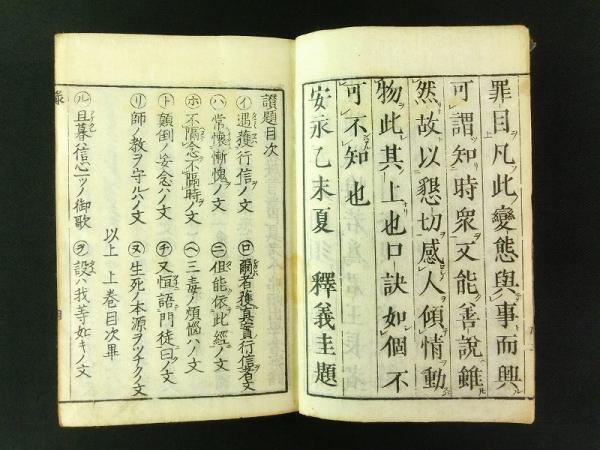 罪目凡此變態與事而興
可謂知時衆又能善說雖
然故以懇切感人傾情動
物此其上也口訣如個不
可不知也
安永乙未夏 釋義圭題
讃題目次
㋑遇獲行信ノ文 ㋺爾者獲真實行信者文
㋩常懷慚愧ノ文 ㋥但能依此經ノ文
㋭不隔念不隔時ノ文 ㋬三毒ノ煩惱ハノ文
㋣顛倒ノ妄念ハノ文 ㋠又恒語門徒曰ノ文
㋷師ノ教ヲ守ルハノ文 ㋦生死ノ本源ヲツナクノ文
以上 上巻目次畢
㋸且暮信心一ツノ御歌 ㋾設ハ我等如キノ文